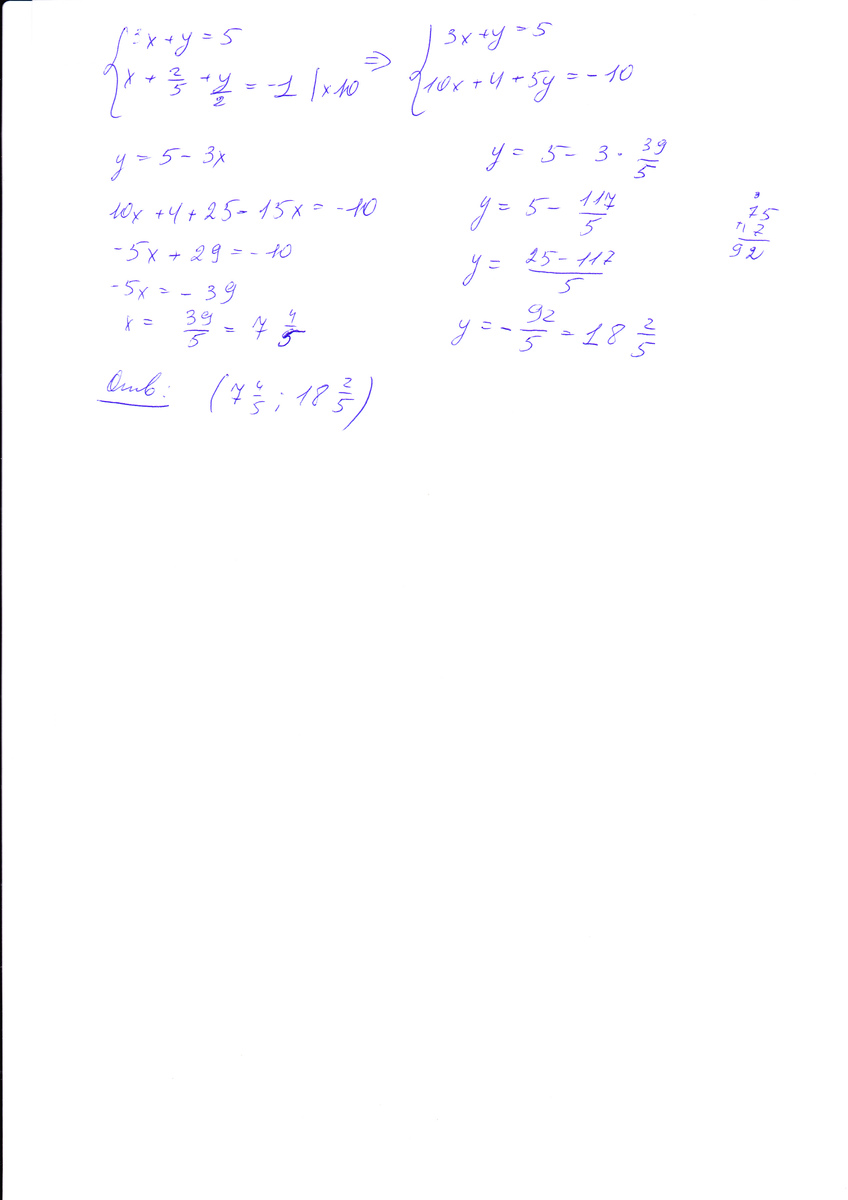 { 3x + y = 5
x + 2/5 + y/2 = -1 | x10
=> { 3x + y = 5
10x + 4 + 5y = -10
y = 5 - 3x
10x + 4 + 25 - 15x = -10
-5x + 29 = -10
-5x = -39
x = 39/5 = 7 4/5
y = 5 - 3 · 39/5
y = 5 - 117/5
y = (25 - 117)/5
y = - 92/5 = 18 2/5
75
17
92
Отв: (7 4/5; 18 2/5)